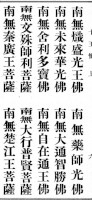 南無熾盛光王佛
南無藥師光佛
南無未來華光佛
南無大通智勝佛
南無舍利多寶佛
南無自在通王佛
南無文殊師利菩薩
南無大行普賢菩薩
南無秦廣王菩薩
南無楚江王菩薩